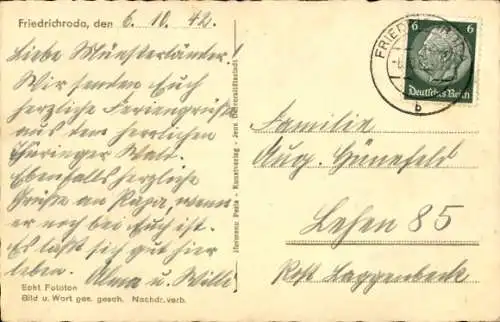 Friedrichroda, den 6. 10. 42.
Liebe Münsterländer!
Wir senden Euch
herzliche Feriengrüße
aus dem herrlichen
Thüringer Wald.
Ebenfalls herzliche
Grüße an Papa, wenn
er noch bei Euch ist.
Es läßt sich gut hier
leben. Alma u. Willi
Echt Fototon
Bild u. Wort ges. gesch. Nachdr. verb.
Hermann Paris - Kunstverlag - Jena
FRIED
b
6 6
Deutsches Reich
Familie
Aug. Hünefeld
Lehen 85
Post Laggenbeck